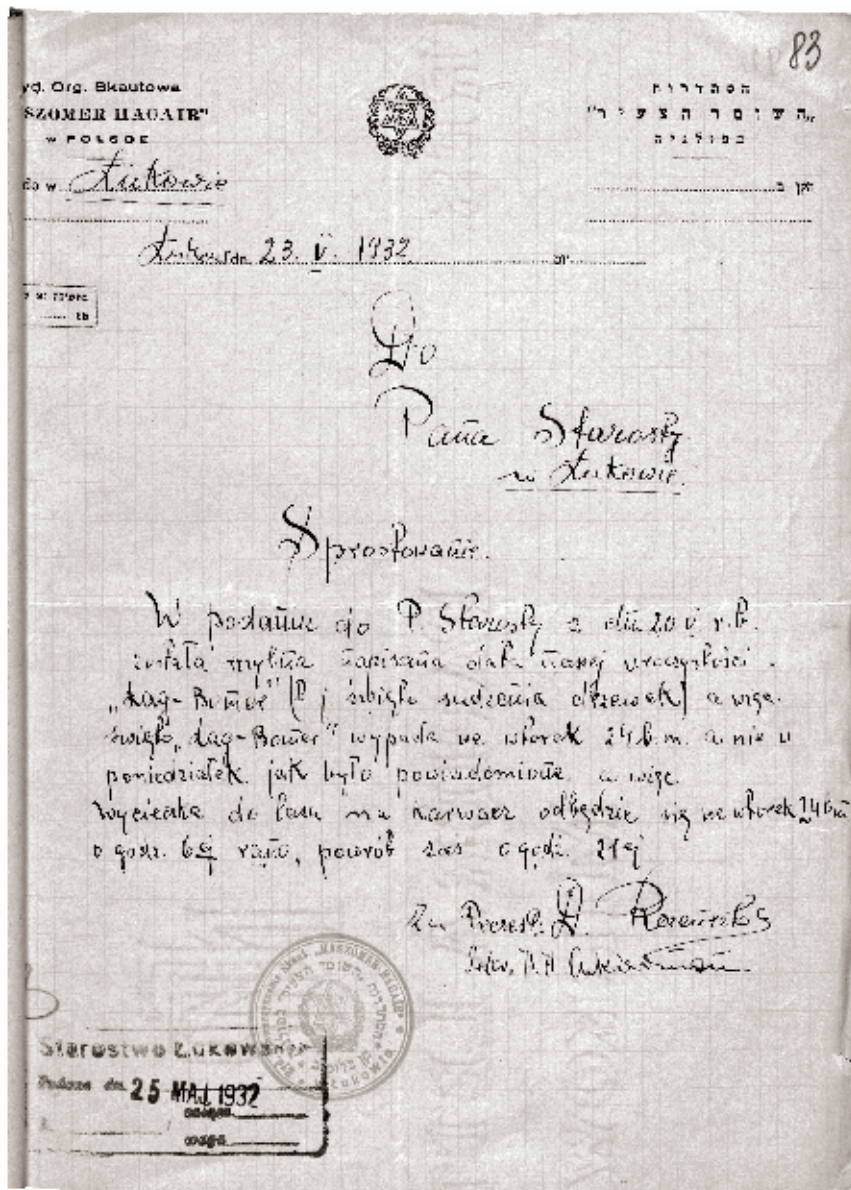 83
yd. Org. Skautowa
SZOMER HACAIR"
w POLSCE
הסתדרות
"השומר הצעיר„
בפולניה
do w Łukowie
קן ב
Łuków dn. 23. V. 1932
Do
Pana Starosty
w Łukowie.
Sprostowanie.
W podaniu do P. Starosty z dn 20 V r.b.
została mylnie napisana data naszej uroczystości
„Lag-Bomer" (t j święto sadzenia drzewek) a więc
święto „Lag-Bomer" wypada we wtorek 24 b.m. a nie w
poniedziałek jak było powiadomione a więc
wycieczka do lasu na odbędzie się we wtorek 24 bm
o godz. 6ej rano, powrót zaś o godz. 21ej
Za
"HASZOMER HACAIR"
Starostwo Łukowskie
Podano dn. 25 MAJ 1932